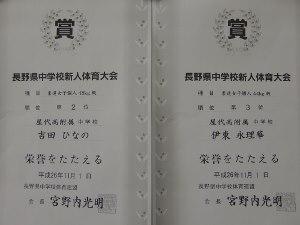 賞
長野県中学校新人体育大会
種目 柔道女子個人 48kg級
順位 第2位
屋代高附属中学校
吉田 ひなの
栄誉をたたえる
平成26年11月1日
長野県中学校体育連盟
会長 宮野内光明
賞
長野県中学校新人体育大会
種目 柔道女子個人 44kg級
順位 第3位
屋代高附属中学校
伊東 永理華
栄誉をたたえる
平成26年11月1日
長野県中学校体育連盟
会長 宮野内光明